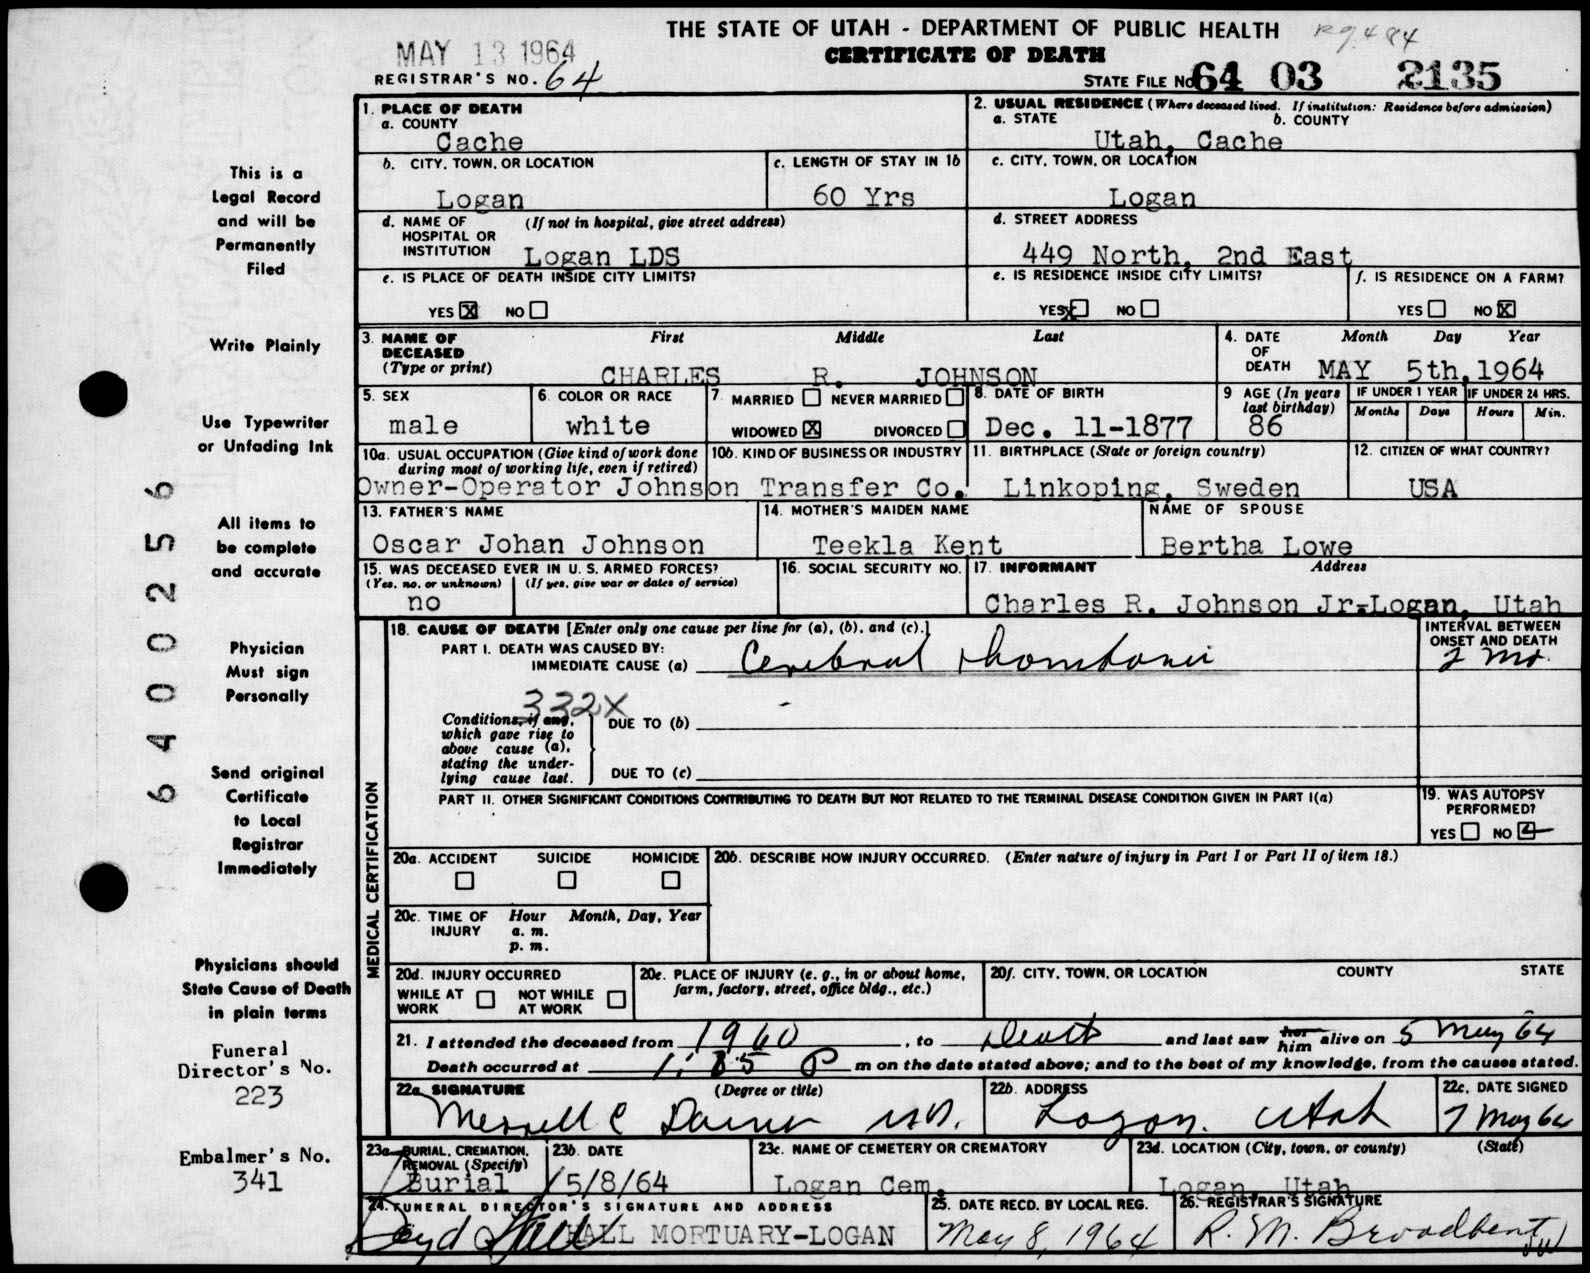 THE STATE OF UTAH - DEPARTMENT OF PUBLIC HEALTH
CERTIFICATE OF DEATH
Rg. 484
MAY 13 1964
REGISTRAR'S NO. 64
STATE FILE NO. 64 03 2135
This is a
Legal Record
and will be
Permanently
Filed
Write Plainly
Use Typewriter
or Unfading Ink
All items to
be complete
and accurate
Physician
Must sign
Personally
Send original
Certificate
to Local
Registrar
Immediately
Physicians should
State Cause of Death
in plain terms
Funeral
Director's No.
223
Embalmer's No.
341
6400256
1. PLACE OF DEATH
a. COUNTY
Cache
2. USUAL RESIDENCE (Where deceased lived. If institution: Residence before admission)
a. STATE b. COUNTY
Utah, Cache
b. CITY, TOWN, OR LOCATION
Logan
c. LENGTH OF STAY IN 1b
60 Yrs
c. CITY, TOWN, OR LOCATION
Logan
d. NAME OF (If not in hospital, give street address)
HOSPITAL OR
INSTITUTION Logan LDS
d. STREET ADDRESS
449 North, 2nd East
e. IS PLACE OF DEATH INSIDE CITY LIMITS?
YES X NO
e. IS RESIDENCE INSIDE CITY LIMITS?
YES X NO
f. IS RESIDENCE ON A FARM?
YES NO X
3. NAME OF First Middle Last
DECEASED
(Type or print) CHARLES R. JOHNSON
4. DATE Month Day Year
OF
DEATH MAY 5th, 1964
5. SEX
male
6. COLOR OR RACE
white
7. MARRIED NEVER MARRIED
WIDOWED X DIVORCED
8. DATE OF BIRTH
Dec. 11-1877
9 AGE (In years
last birthday)
86
IF UNDER 1 YEAR IF UNDER 24 HRS.
Months Days Hours Min.
10a. USUAL OCCUPATION (Give kind of work done
during most of working life, even if retired)
10b. KIND OF BUSINESS OR INDUSTRY
Owner-Operator Johnson Transfer Co.
11. BIRTHPLACE (State or foreign country)
Linkoping, Sweden
12. CITIZEN OF WHAT COUNTRY?
USA
13. FATHER'S NAME
Oscar Johan Johnson
14. MOTHER'S MAIDEN NAME
Teekla Kent
NAME OF SPOUSE
Bertha Lowe
15. WAS DECEASED EVER IN U. S. ARMED FORCES?
(Yes, no, or unknown) (If yes, give war or dates of service)
no
16. SOCIAL SECURITY NO.
17. INFORMANT Address
Charles R. Johnson Jr-Logan, Utah
MEDICAL CERTIFICATION
18. CAUSE OF DEATH [Enter only one cause per line for (a), (b), and (c).]
PART I. DEATH WAS CAUSED BY:
IMMEDIATE CAUSE (a) Cerebral Thombosis
INTERVAL BETWEEN
ONSET AND DEATH
2 Mo.
332X
Conditions, if any,
which gave rise to
above cause (a),
stating the under-
lying cause last.
DUE TO (b)
DUE TO (c)
PART II. OTHER SIGNIFICANT CONDITIONS CONTRIBUTING TO DEATH BUT NOT RELATED TO THE TERMINAL DISEASE CONDITION GIVEN IN PART I(a)
19. WAS AUTOPSY
PERFORMED?
YES NO
20a. ACCIDENT SUICIDE HOMICIDE
20b. DESCRIBE HOW INJURY OCCURRED. (Enter nature of injury in Part I or Part II of item 18.)
20c. TIME OF Hour Month, Day, Year
INJURY a. m.
p. m.
20d. INJURY OCCURRED
WHILE AT NOT WHILE
WORK AT WORK
20e. PLACE OF INJURY (e. g., in or about home,
farm, factory, street, office bldg., etc.)
20f. CITY, TOWN, OR LOCATION COUNTY STATE
21. I attended the deceased from 1960, to Death and last saw her him alive on 5 May 64
Death occurred at P m on the date stated above; and to the best of my knowledge, from the causes stated.
22a. SIGNATURE (Degree or title)
Merrell C Daines MD.
22b. ADDRESS
Logan, Utah
22c. DATE SIGNED
7 May 64
23a. BURIAL, CREMATION,
REMOVAL (Specify)
Burial
23b. DATE
5/8/64
23c. NAME OF CEMETERY OR CREMATORY
Logan Cem.
23d. LOCATION (City, town, or county) (State)
Logan, Utah
24. FUNERAL DIRECTOR'S SIGNATURE AND ADDRESS
HALL MORTUARY-LOGAN
25. DATE RECD. BY LOCAL REG.
May 8, 1964
26. REGISTRAR'S SIGNATURE
R. M. Broadbent